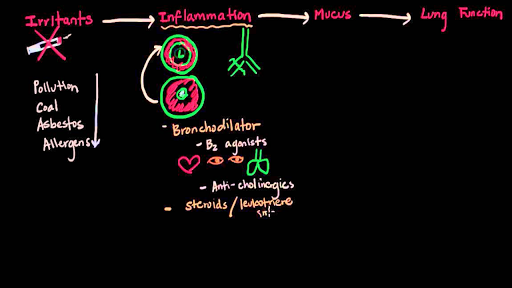 Irritants Inflammation Mucus Lung Function
Pollution
Coal
Asbestos
Allergens
- Bronchodilator
- B2 agonists
- Anti-cholinergics
- steroids/leukotriene